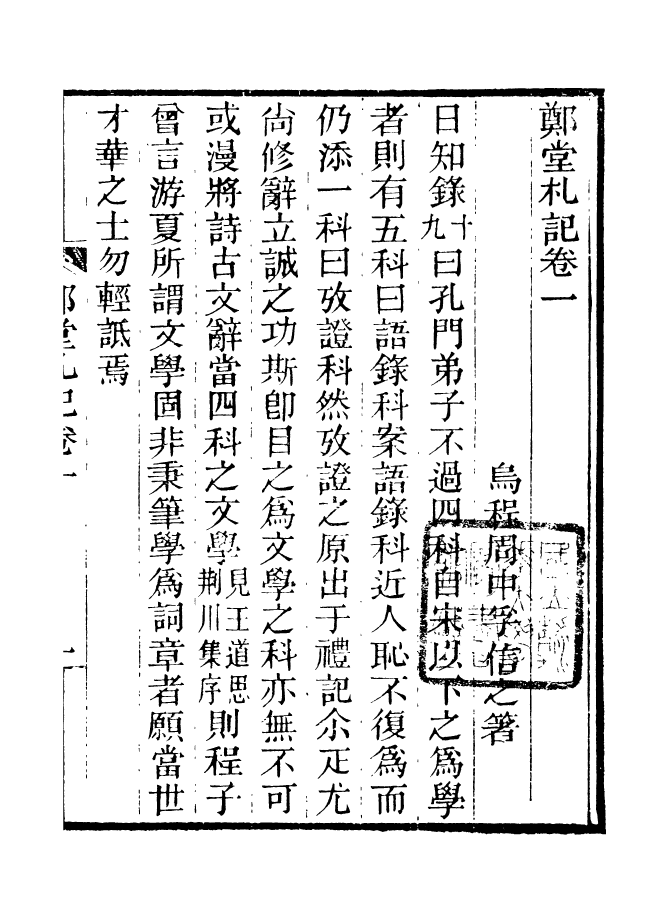 鄭堂札記卷一
烏程周中孚信之著
日知錄十九曰孔門弟子不過四科自宋以下之爲學
者則有五科曰語錄科案語錄科近人恥不復爲而
仍添一科曰攷證科然攷證之原出于禮記尒疋尤
尙修辭立誠之功斯卽目之爲文學之科亦無不可
或漫將詩古文辭當四科之文學見王道思荆川集序則程子
曾言游夏所謂文學固非秉筆學爲詞章者願當世
才華之士勿輕詆焉
鄭堂札記卷一
一